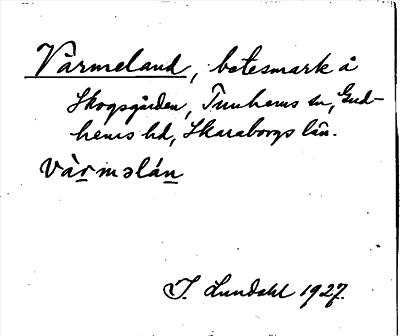 Värmeland, betesmark å
Skogsgården, Tunhems sn, Gud-
hems hd, Skaraborgs län.
vàrməlán
I. Lundahl 1927.